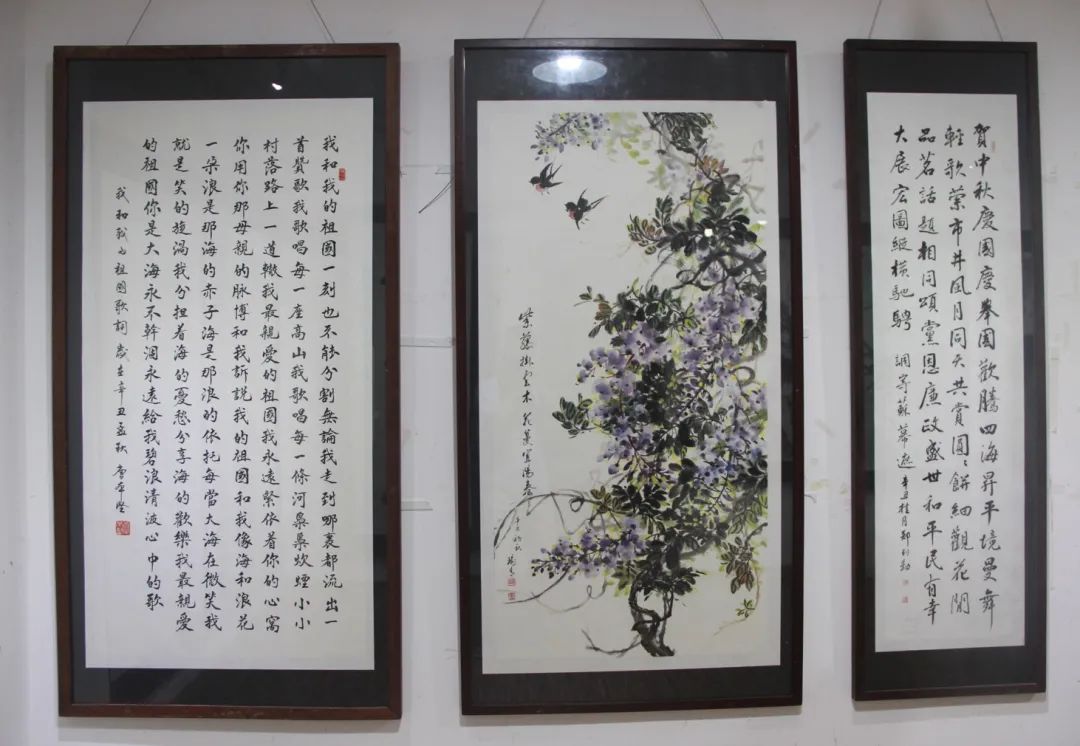 我和我的祖國一刻也不能分割無論我走到哪裏都流出一
首贊歌我歌唱每一座高山我歌唱每一條河裊裊炊煙小小
村落路上一道轍我最親愛的祖國我永遠緊依着你的心窩
你用你那母親的脉博和我訴説我的祖國和我像海和浪花
一朵浪是那海的赤子海是那浪的依托每當大海在微笑我
就是笑的旋渦我分担着海的憂愁分享海的歡樂我最親愛
的祖國你是大海永不幹涸永遠給我碧浪清波心中的歌
我和我的祖國歌詞 歲在辛丑孟秋
紫藤掛雲木 花蔓宜陽春
辛丑初秋
賀中秋慶國慶舉國歡騰四海昇平境曼舞
輕歌縈市井風月同天共賞圓圓餅細觀花閒
品茗話題相同頌黨恩廉政盛世和平民有幸
大展宏圖縱橫馳騁 調寄蘇幕遮 辛丑桂月